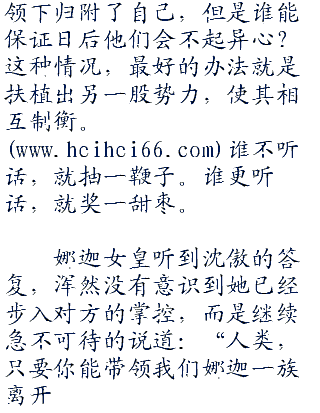 领下归附了自己，但是谁能
保证日后他们会不起异心？
这种情况，最好的办法就是
扶植出另一股势力，使其相
互制衡。
(www.hcihci66.com)谁不听
话，就抽一鞭子。谁更听
话，就奖一甜枣。
娜迦女皇听到沈傲的答
复，浑然没有意识到她已经
步入对方的掌控，而是继续
急不可待的说道：“人类，
只要你能带领我们娜迦一族
离开